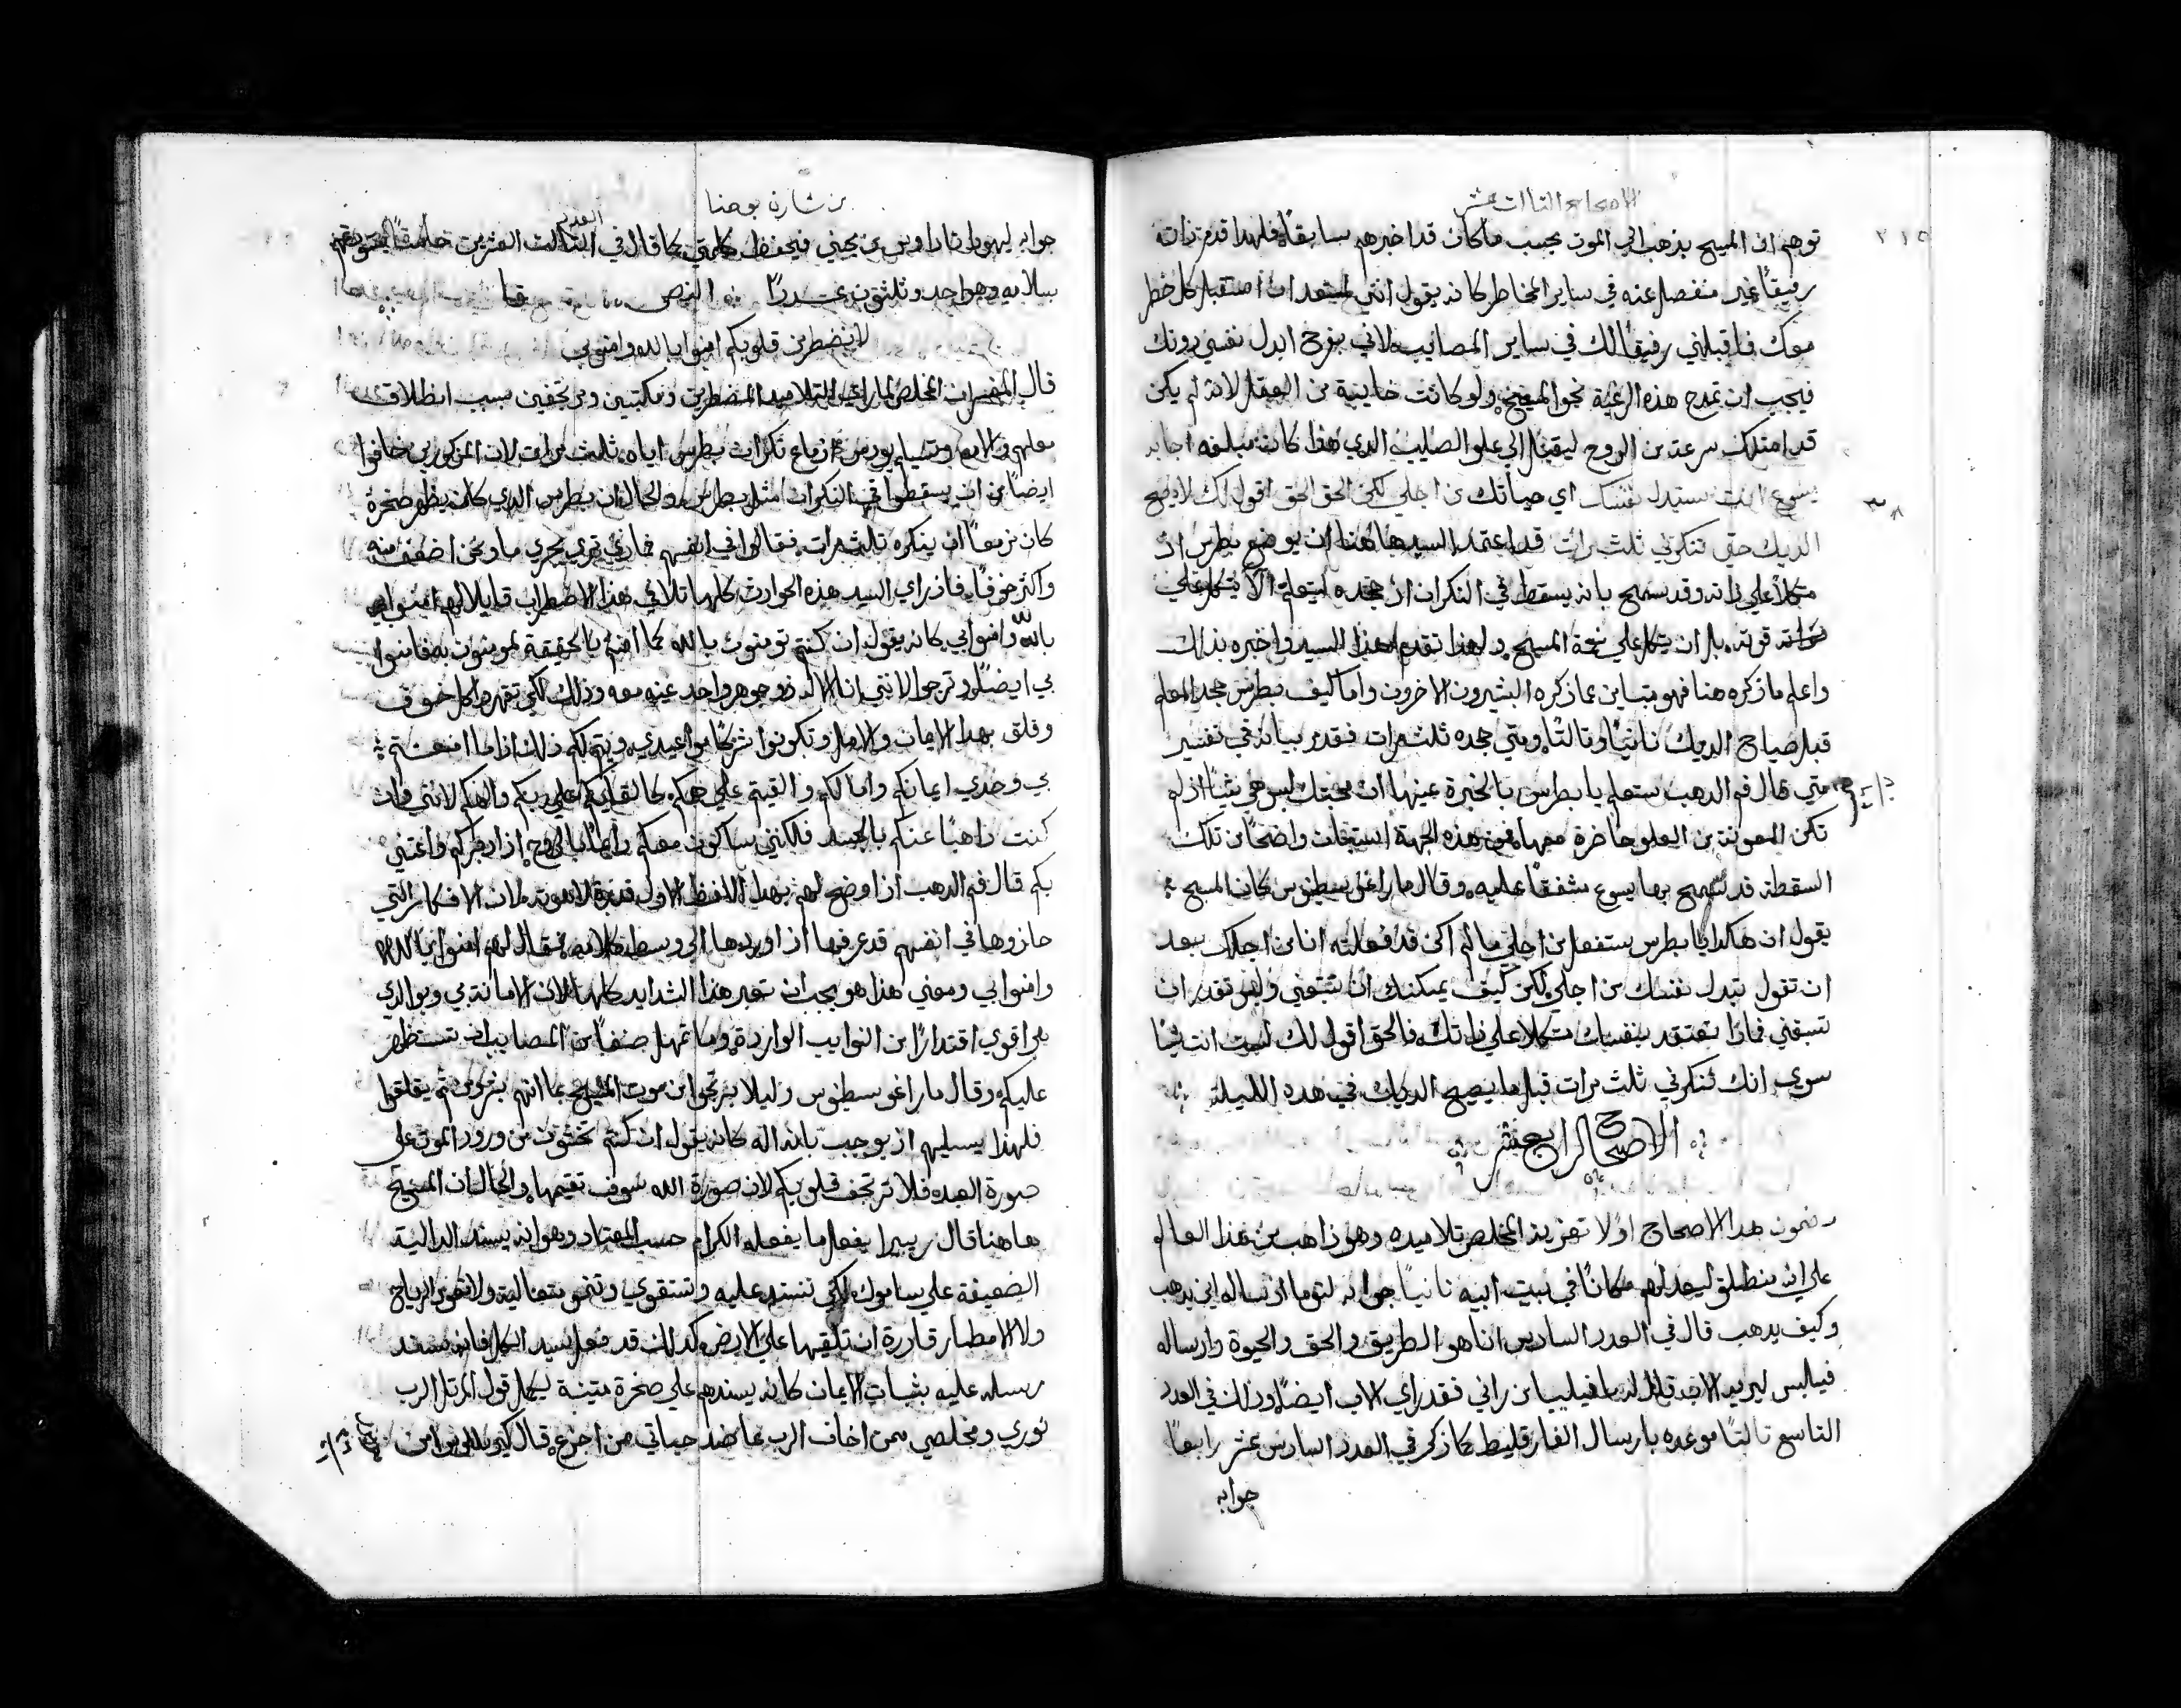 الاصحاح الثالث عشر
٢١٥
توهم ان المسيح يذهب الي الموت بحسب ما كان قد اخبرهم سابقًا فلهذا قدم ذاته
رفيقًا غير منفصل عنه في ساير المخاطر كانه يقول انني مستعد ان استقبل كل خطر
معك فاقبلني رفيقًا لك في ساير المصايب لاني بفرح ابدل نفسي دونك
فيجب ان تمدح هذه الرغبة نحو المسيح ولو كانت خايبة من العقل لانه لم يكن
قد امتلك سرعة من الروح ليقبل الي علو الصليب الدي هذا كان مبلغه اجابه
يسوع انت ستبدل نفسك اي حياتك من اجلي لكن الحق الحق اقول لك لا يصيح
٣٨
الديك حتي تنكرني ثلث مرات قد اعتمد السيد هاهنا ان يوضع بطرس اذ
متكلًا علي ذاته وقد سمح بانه يسقط في النكران اذ جحده ليتعلم الا يتكل علي
قوته بل ان يتكل علي نعمة المسيح ولهذا تقدم هذا السيد واخبره بذلك
واعلم ما ذكره هنا فهو متباين عما ذكره البشيرون الاخرون واما كيف بطرس جحد المعلم
قبل صياح الديك ثانيًا وثالثًا ومتي جحده ثلث مرات فقد مر بيانه في تفسير
متي قال فم الدهب ستعلم يا بطرس بالخبرة عينها ان محبتك ليس هي شيًا اذ لم
تكن المعونة من العلو حاضرة معها فمن هذه الجهة استبان واضحًا من تلك
السقطة قد سمح بها يسوع مشفقًا عليه وقال ماراغوسطينوس كان المسيح
يقول ان هاكدا يا بطرس ستفعل من اجلي ما لم اكن قد فعلته انا من اجلك بعد
ان تقول تبدل نفسك من اجلي لكن كيف يمكنك ان تتبعني وليس تقدر ان
تسبقني فماذا تعتقد بنفسك متكلًا علي ذاتك فالحق اقول لك لست انت شيًا
سوي انك تنكرني ثلث مرات قبل ما يصيح الديك في هده الليلة
الاصحاح الرابع عشر
مضمون هدا الاصحاح اولًا تعزية المخلص تلاميده وهو ذاهب من هذا العالم
علي انه منطلق ليعد لهم مكانًا في بيت ابيه ثانيًا جوابه لتوما اذ ساله اين يدهب
وكيف يدهب قال في العدد السادس انا هو الطريق والحق والحيوة واذ ساله
فيلبس ليريه الاب قايل له يا فيليبا من راني فقد راي الاب ايضًا وذلك في العدد
التاسع ثالثًا موعده بارسال الفارقليط كما ذكر في العدد السادس عشر رابعًا
جوابه
من بشارة يوحنا
العدد
جوابه ليهودا تاداوس من يحبني فيحفظ كلمتي كما قال في الثالث والعشرين خامسًا
بسلامه وهو واحد وثلثون عددًا النص
لا تضطرب قلوبكم امنوا بالله وامنوا بي
قال المفسر ان المخلص لما راي التلاميد مضطربين ومكتيبين ومرتجفين بسبب انطلاق
معلمهم والامه من ازماع نكران بطرس اياه ثلث مرات لان المذكورين خافوا
ايضًا من ان يسقطوا في النكران مثل بطرس والحال ان بطرس الدي كان يظهر صخرة
كان مزمعًا ان ينكره ثلث مرات فقالوا في انفسهم فماذي تري يجري ما ونحن اضعف منه
واكثر خوفًا فاذ راي السيد هذه الحوادث كلها تلافي هذا الاضطراب قايلًا لهم امنوا
بالله وامنوا بي كانه يقول ان كنتم تومنون بالله كما انتم بالحقيقة لمومنون به فامنوا
بي ايضًا وترجوا لانني انا الاله ذو جوهر واحد عينه معه وذلك لكي تقهروا كل خوف
وقلق بهدا الايمان والامل وتكونوا شركا مواعيدي ويتم لكم ذلك اذا ما امنتم
بي وحدي ايمانكم وامالكم والقيتم علي همكم كالقايكم علي ربكم والهكم لانني وان
كنت ذاهبًا عنكم بالجسد فلكنني ساكون معكم دايمًا بالروح اذ ادبركم واعتني
بكم قال فم الدهب اذ اوضح لهم بهدا اللفظ الاول قدرة لاهوته لان الافكار التي
حازوها في انفسهم قد عرفها اذ اوردها الي وسط كلامه فقال لهم امنوا بالله
وامنوا بي ومعني هذا هو يجب ان تعبر هذا الشدايد كلها لان الامانة بي وبوالدي
هي اقوي اقتدارًا من النوايب الواردة وما تمهل صنفًا من المصايب ان تستظهر
عليكم وقال ماراغوسطينوس وليلا يرتجوا من موت المسيح بما انهم بشريون ثم يقلقوا
فلهذا يسليهم اذ يوجب بانه اله كانه يقول ان كنتم تخشون من ورود الموت علي
صورة العبد فلا ترتجف قلوبكم لان صورة الله سوف تقيمها والحال ان المسيح
هاهنا قال ريبيرا يفعل ما يفعله الكرام حسب المعتاد وهو انه يسند الدالية
الضعيفة علي ساموك لكي تستند عليه وتستقوي وتنمو متعالية ولا تقوي الرياح
ولا الامطار قادرة ان تلقيها علي الارض كدلك قد فعل سيد الكل فانه يسند
رسله عليه بثبات الايمان كانه يسندهم علي صخرة متينة ليكمل قول المرتل الرب
نوري ومخلصي ممن اخاف الرب عاضد حياتي ممن اجزع قال